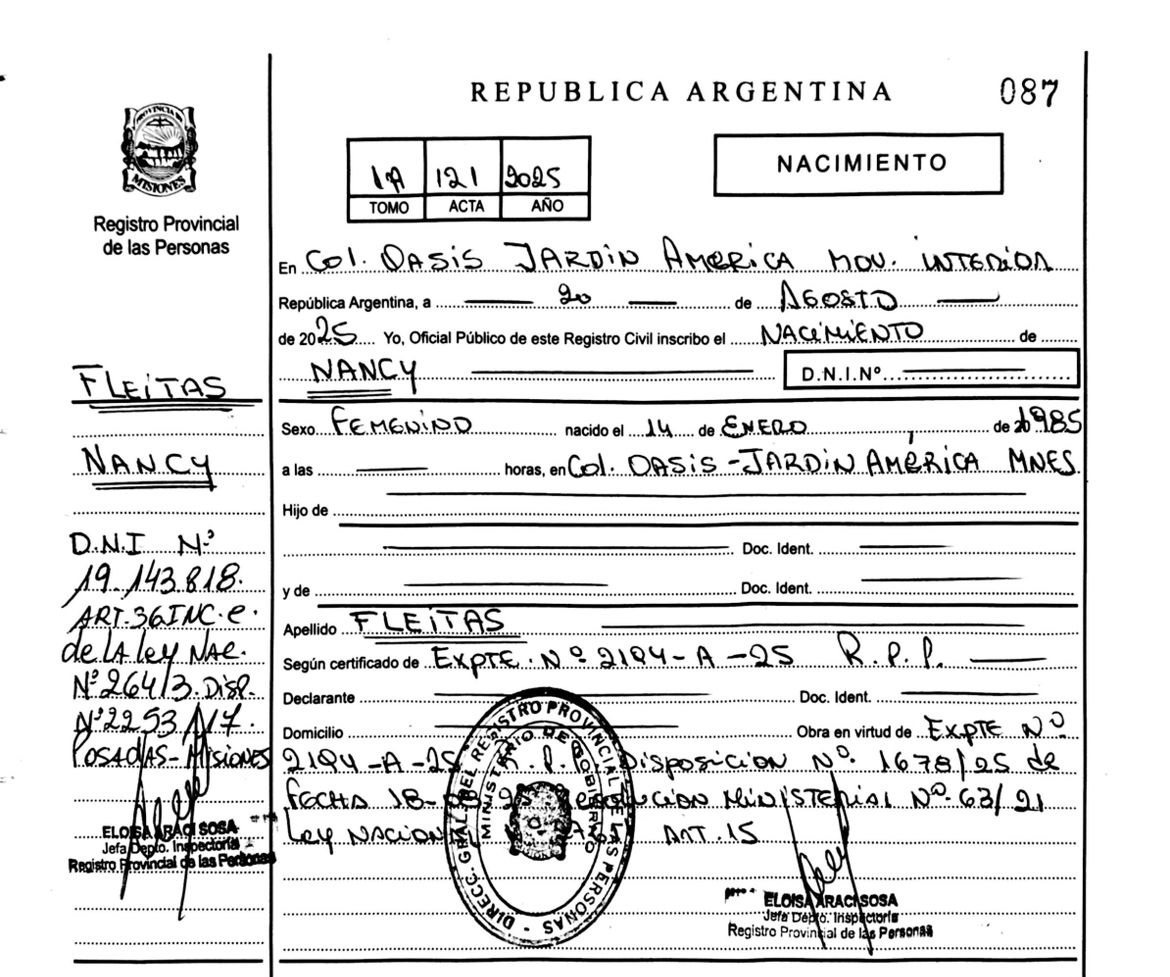 REPUBLICA ARGENTINA
087
PROVINCIA DE
MISIONES
Registro Provincial
de las Personas
1A 121 2025
TOMO ACTA AÑO
NACIMIENTO
En Col. OASIS JARDIN AMERICA MOV. INTERIOR
República Argentina, a 20 de AGOSTO
de 2025 Yo, Oficial Público de este Registro Civil inscribo el NACIMIENTO de
NANCY D.N.I.Nº
Sexo FEMENINO nacido el 14 de ENERO de 1985
a las horas, en Col. OASIS - JARDIN AMÉRICA MNES
Hijo de
Doc. Ident.
y de Doc. Ident.
Apellido FLEITAS
Según certificado de EXPTE. Nº 2194-A-25 R.P.P.
Declarante Doc. Ident.
Domicilio Obra en virtud de EXPTE Nº
2194-A-25 R.P.P. DISPOSICION Nº 1678/25 de
FECHA 18- MINISTERIAL Nº 63/21
LEY NACIONAL ART. 15
FLEITAS
NANCY
D.N.I Nº
19.143.818.
ART. 36 INC. e.
de LA Ley NAC.
Nº 26413. DISP.
Nº 2253/17.
POSADAS - MISIONES
ELOISA ARACI SOSA
Jefa Depto. Inspectoría
Registro Provincial de las Personas
DIRECC. GRAL. DEL REGISTRO PROVINCIAL DE LAS PERSONAS
MINISTERIO DE GOBIERNO
ELOISA ARACI SOSA
Jefa Depto. Inspectoría
Registro Provincial de las Personas